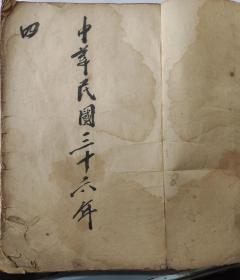 中華民國三十六年
四